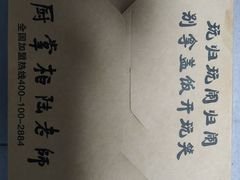 玩归玩闹归闹
别拿盖饭开玩笑
厨掌柜陆老师
全国加盟热线400-100-2884